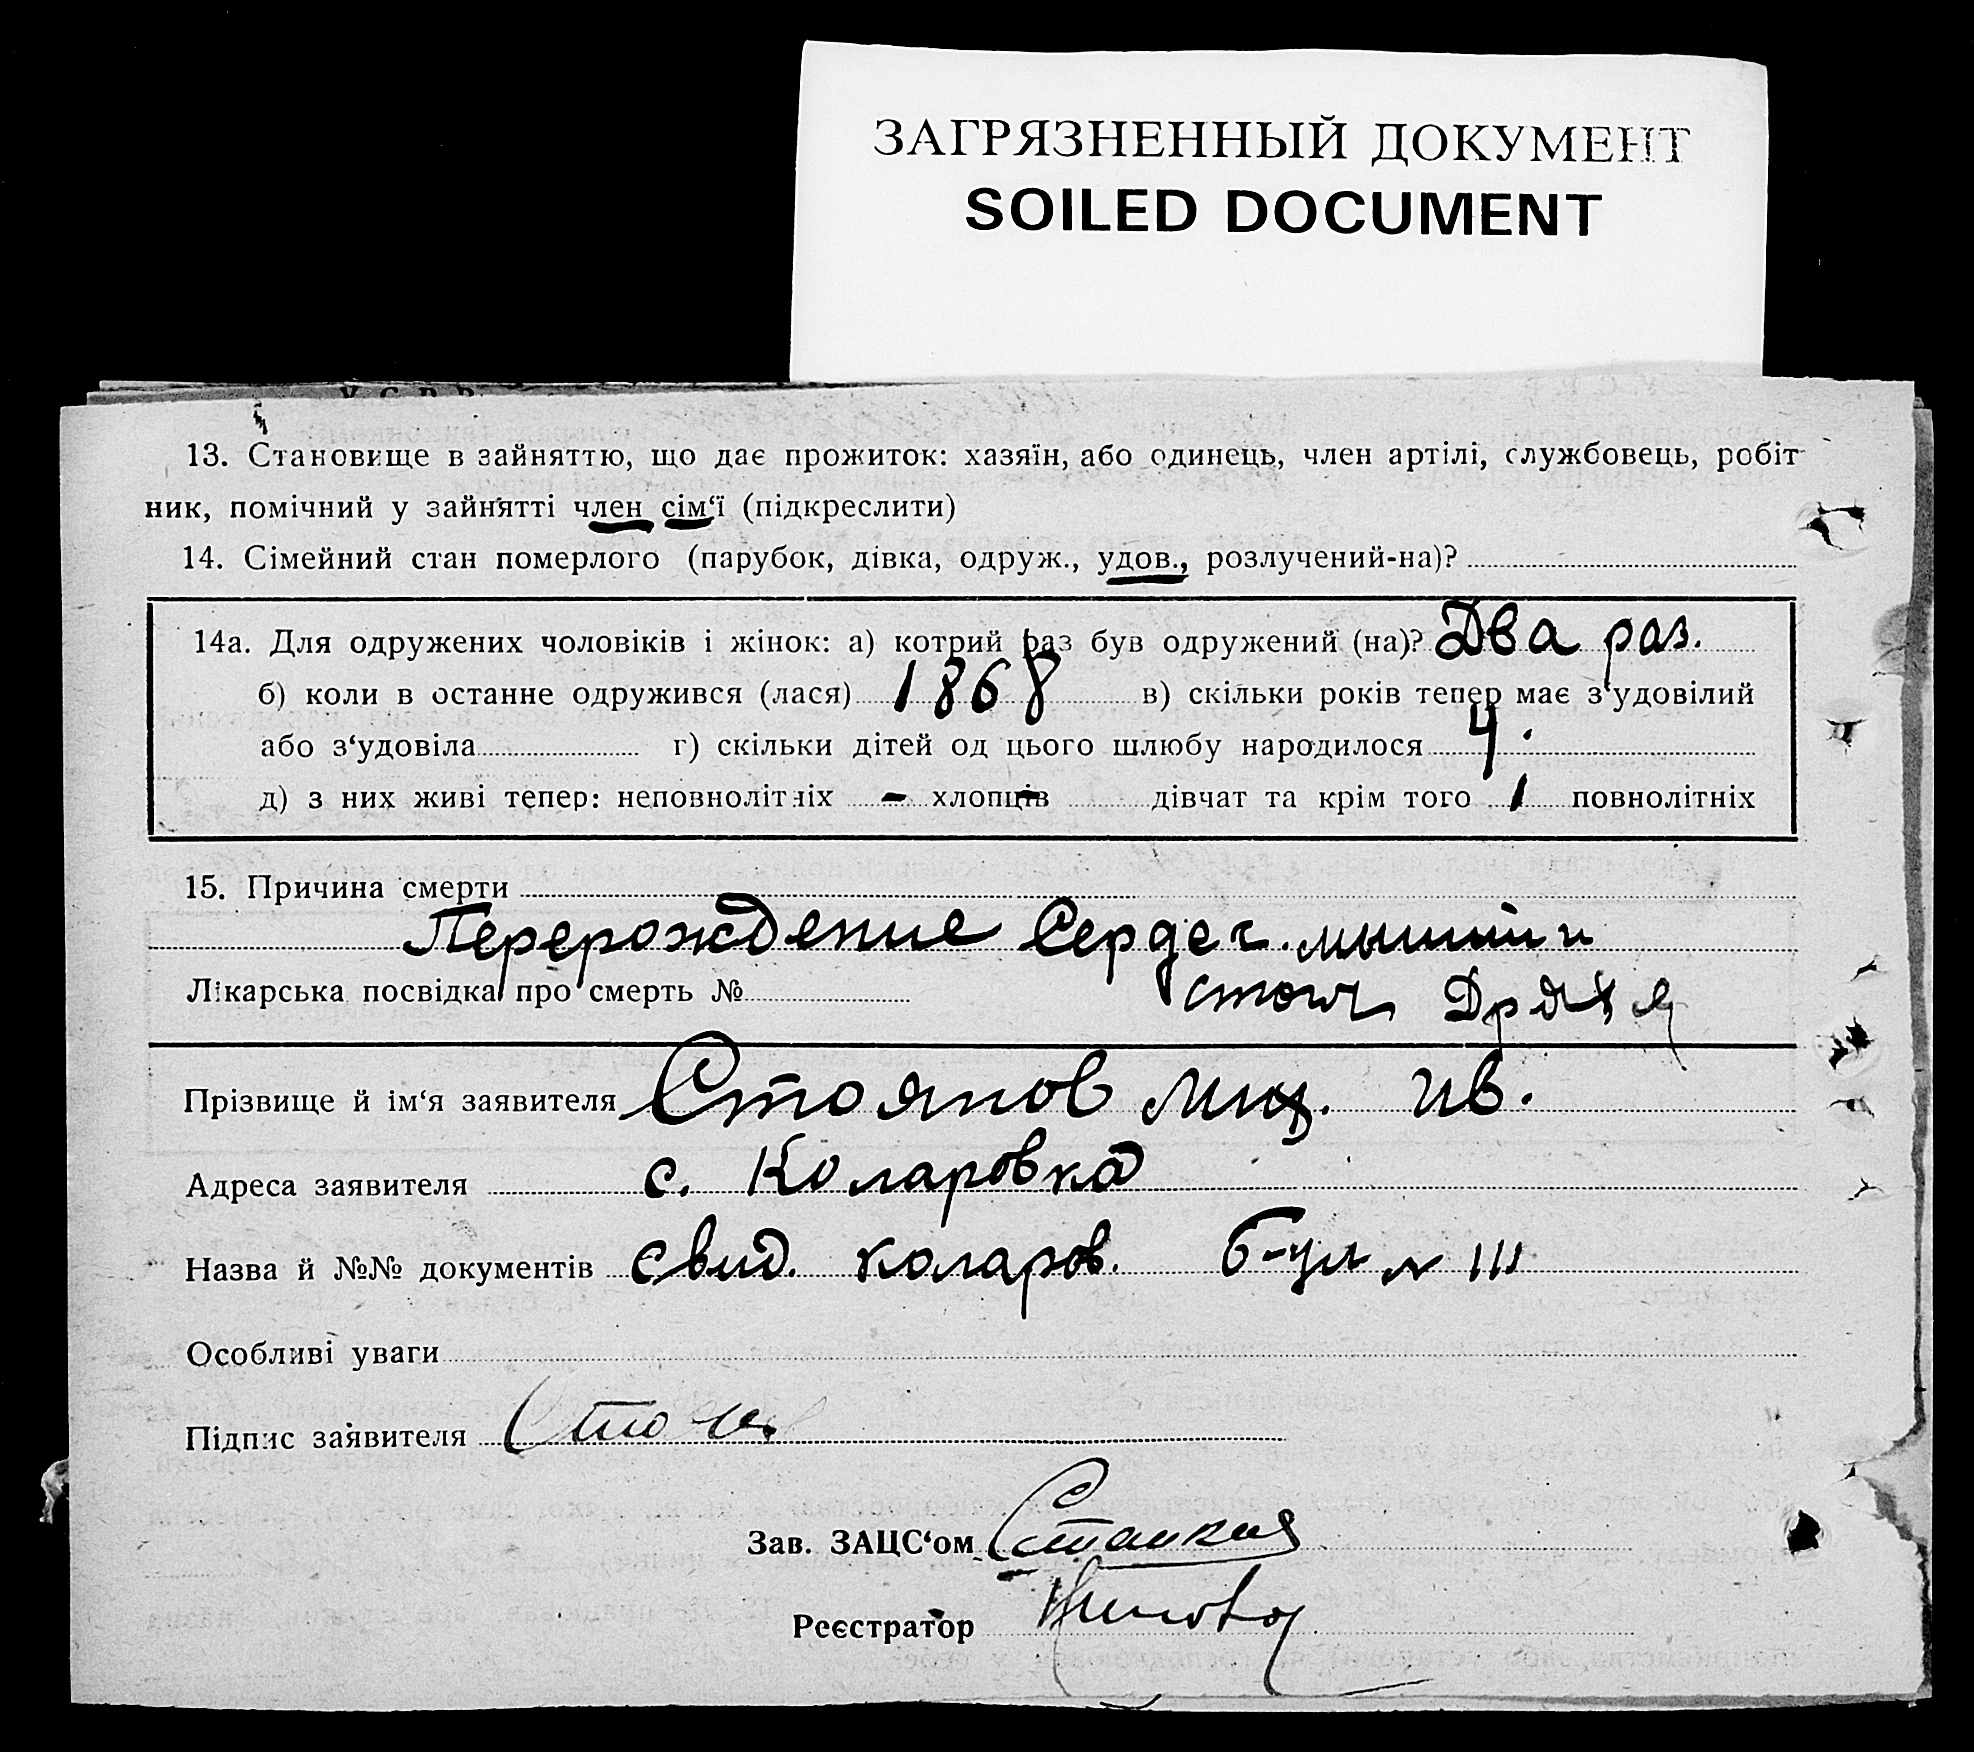 ЗАГРЯЗНЕННЫЙ ДОКУМЕНТ
SOILED DOCUMENT
13. Становище в зайняттю, що дає прожиток: хазяїн, або одинець, член артілі, службовець, робіт-
ник, помічний у зайнятті член сім‘ї (підкреслити)
14. Сімейний стан померлого (парубок, дівка, одруж., удов., розлучений-на)?
14а. Для одружених чоловіків і жінок: а) котрий раз був одружений (на)? Два раз.
б) коли в останне одружився (лася) 1868 в) скільки років тепер має з‘удовілий
або з‘удовіла г) скільки дітей од цього шлюбу народилося 4.
д) з них живі тепер: неповнолітніх - хлопців - дівчат та крім того 1 повнолітніх
15. Причина смерти
Перерождение Сердеч. мышци и
Лікарська посвідка про смерть №
Прізвище й ім‘я заявителя Стоянов Миц. Ив.
Адреса заявителя с. Коларовка
Назва й №№ документів Свид. Коларов. б-цы № 111
Особливі уваги
Підпис заявителя
Зав. ЗАЦС‘ом
Реєстратор